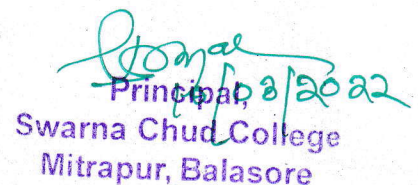 /03/2022
Principal,
Swarna Chud College
Mitrapur, Balasore